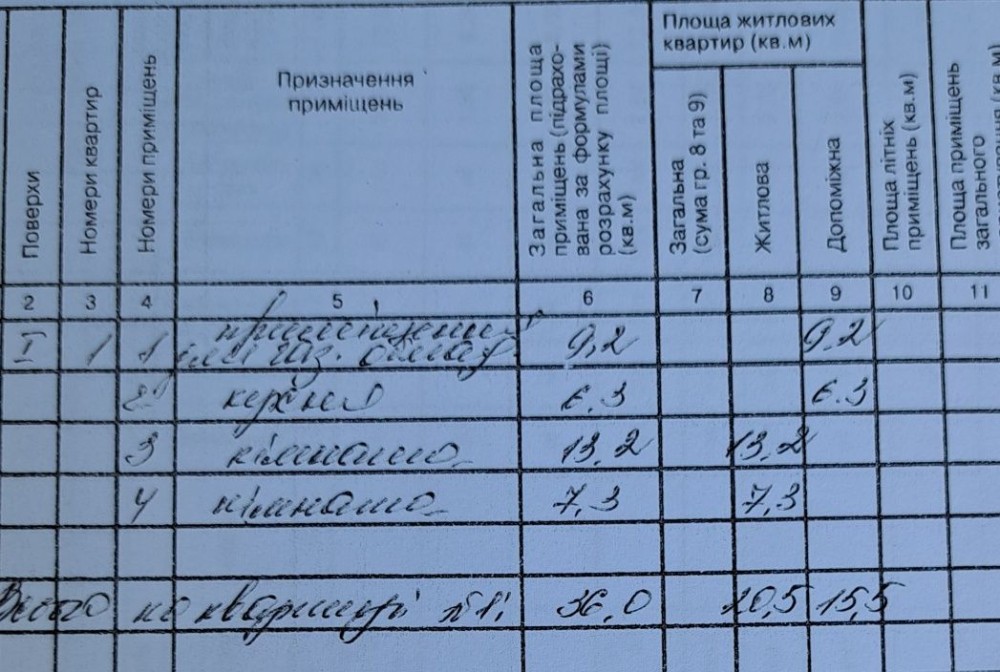 Поверхи
Номери квартир
Номери приміщень
Призначення
приміщень
Загальна площа
приміщень (підрахо-
вана за формулами
розрахунку площі)
(кв.м)
Площа житлових
квартир (кв.м)
Загальна
(сума гр. 8 та 9)
Житлова
Допоміжна
Площа літніх
приміщень (кв.м)
Площа приміщень
загального
2 3 4 5 6 7 8 9 10 11
I 1 1 9,2 9,2
2 кухня 6.3 6.3
3 кімната 13,2 13,2
4 кімната 7,3 7,3
Всього по квартирі №1: 36,0 20,5 15,5